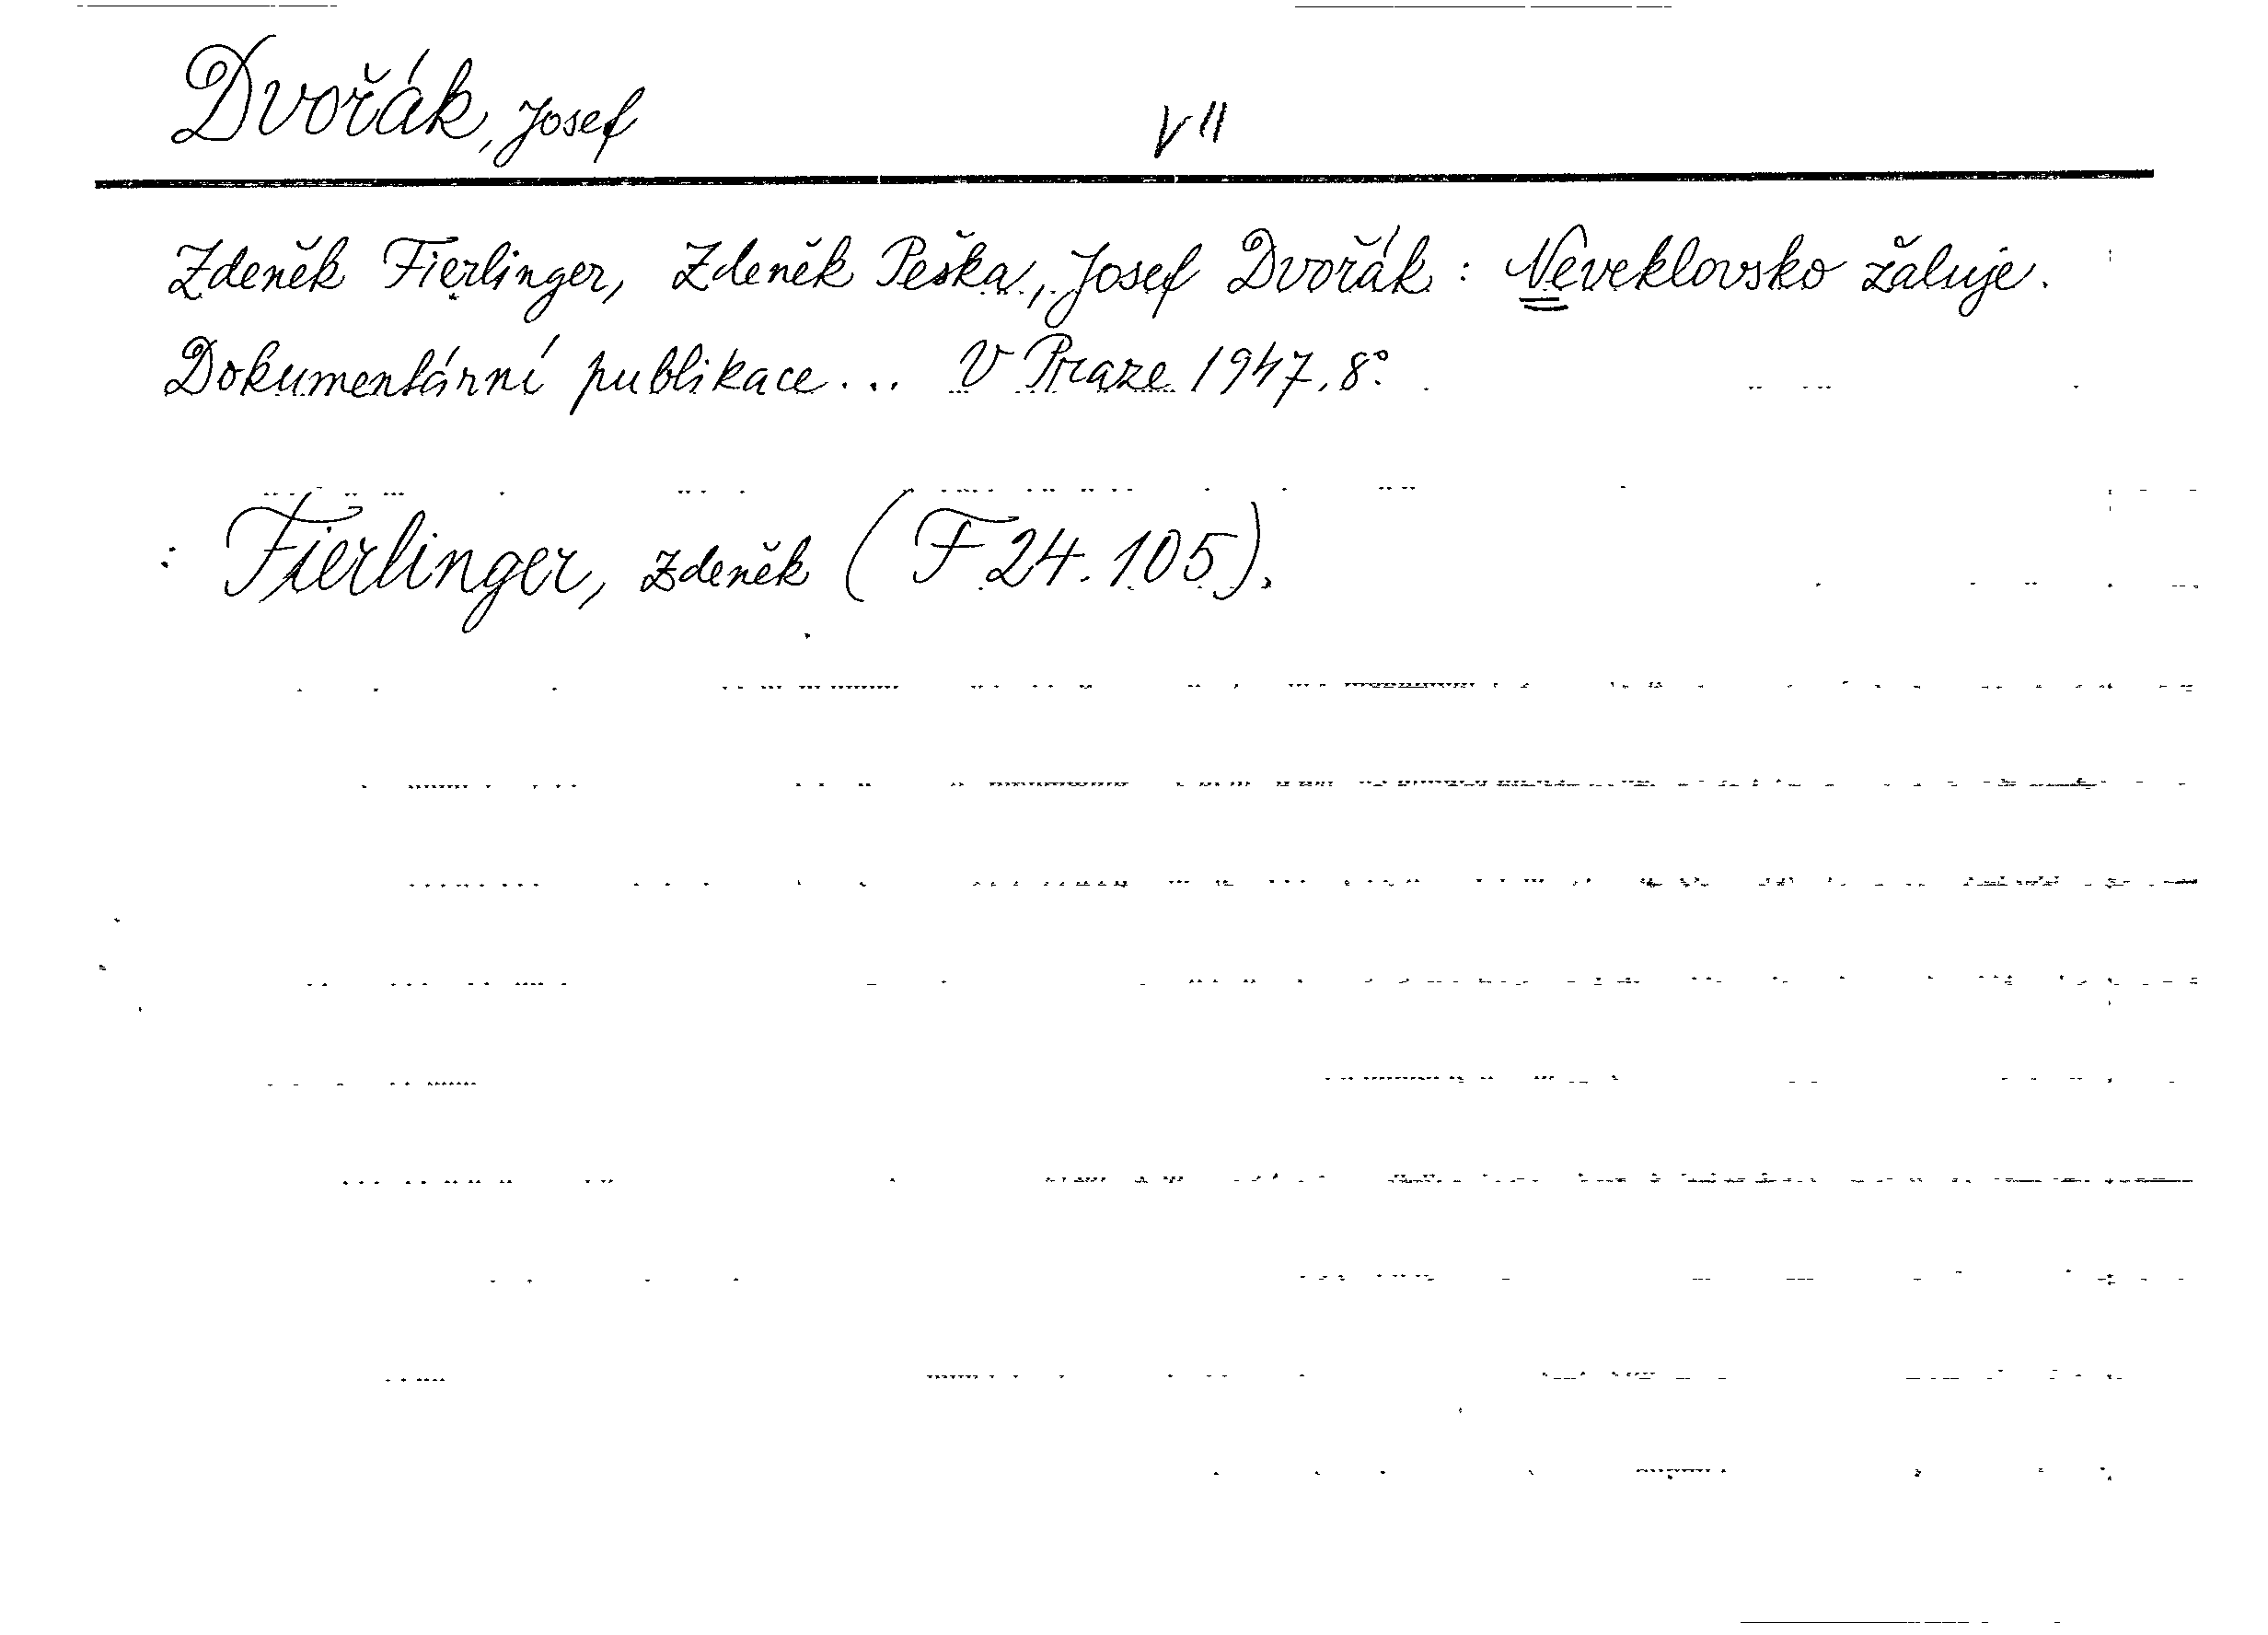 Dvořák, Josef VII
Zdeněk Fierlinger, Zdeněk Peška, Josef Dvořák : Neveklovsko žaluje.
Dokumentární publikace... V Praze 1947. 8°.
: Fierlinger, Zdeněk (F 24.105).